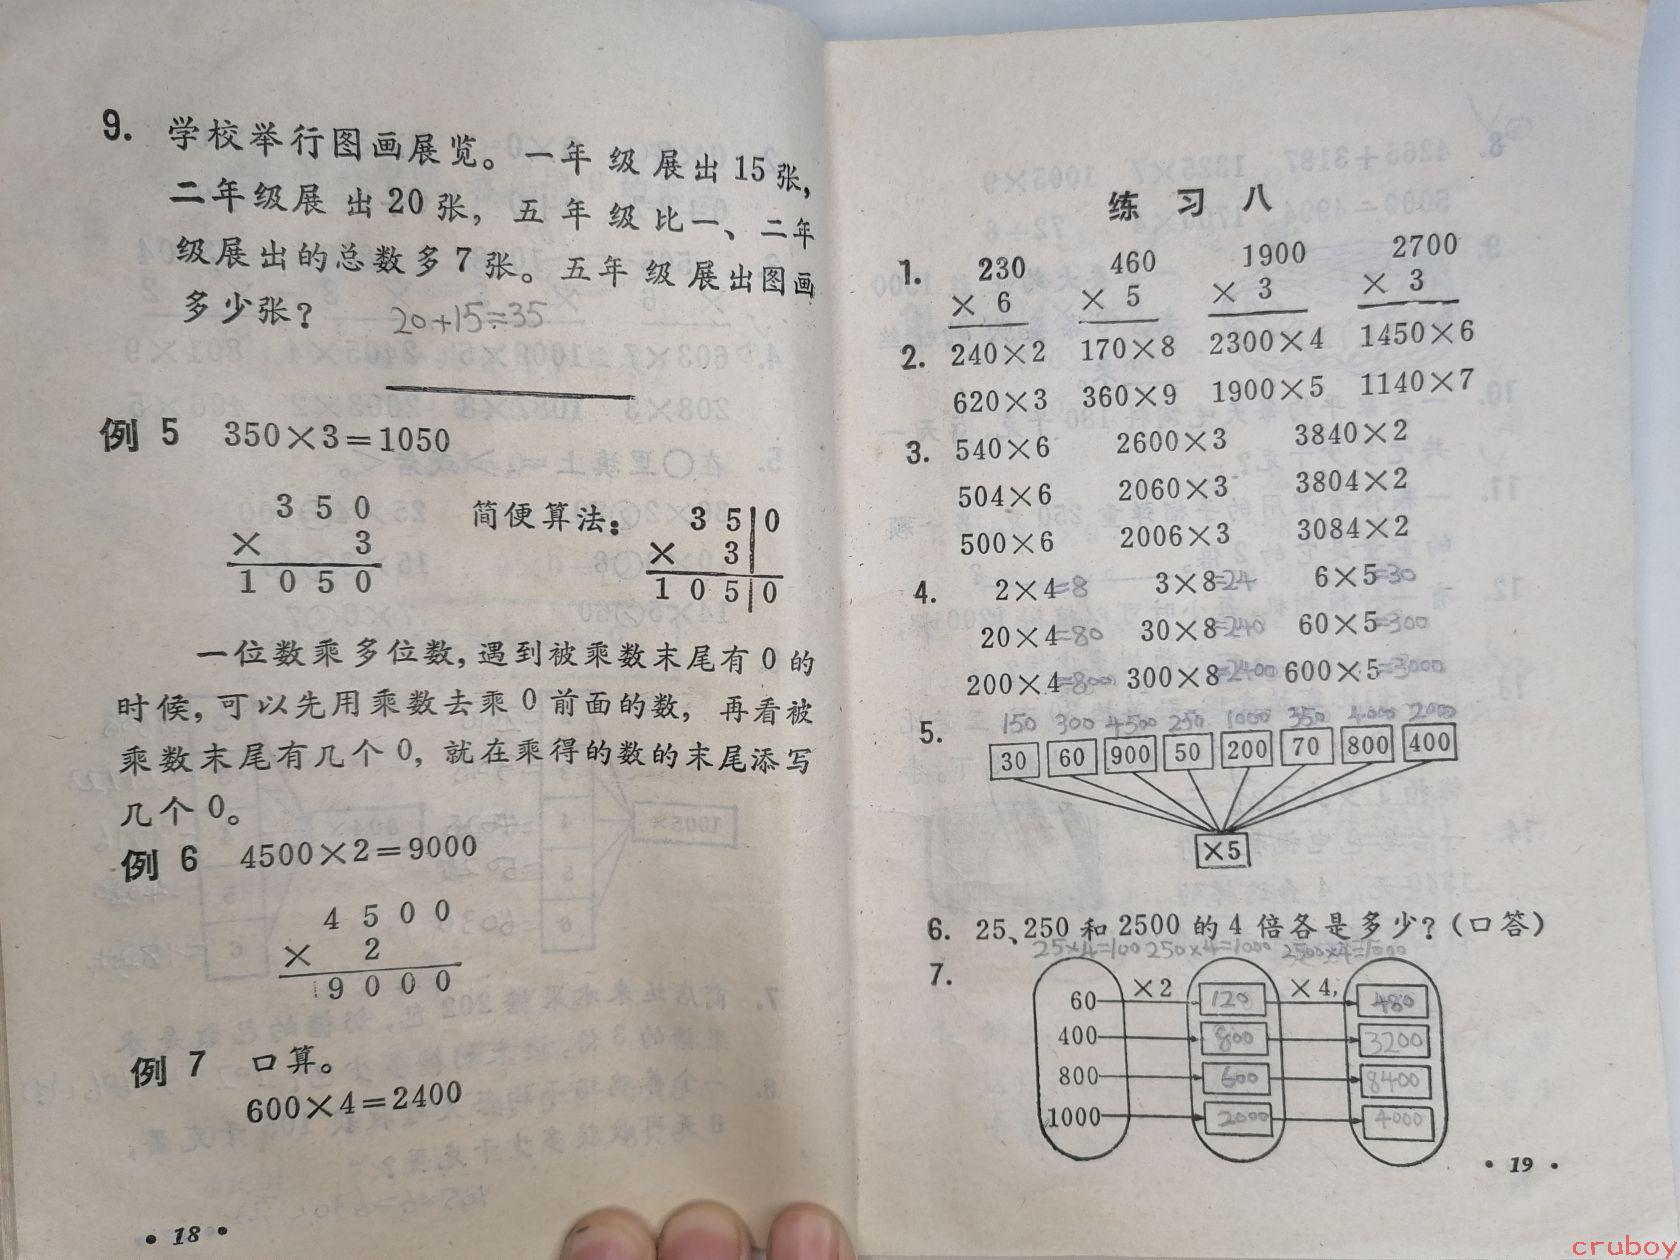 9. 学校举行图画展览。一年级展出15张，
二年级展出20张，五年级比一、二年
级展出的总数多7张。五年级展出图画
多少张？ 20+15=35
例5 350×3=1050
350
× 3
1050
简便算法：
35|0
× 3|
105|0
一位数乘多位数，遇到被乘数末尾有0的
时候，可以先用乘数去乘0前面的数，再看被
乘数末尾有几个0，就在乘得的数的末尾添写
几个0。
例6 4500×2=9000
4500
× 2
9000
例7 口算。
600×4=2400
• 18 •
练习八
1. 230 460 1900 2700
× 6 × 5 × 3 × 3
2. 240×2 170×8 2300×4 1450×6
620×3 360×9 1900×5 1140×7
3. 540×6 2600×3 3840×2
504×6 2060×3 3804×2
500×6 2006×3 3084×2
4. 2×4=8 3×8=24 6×5=30
20×4=80 30×8=240 60×5=300
200×4=800 300×8=2400 600×5=3000
150 300 4500 250 1000 350 4000 2000
5. 30 60 900 50 200 70 800 400
×5
6. 25、250和2500的4倍各是多少？（口答）
25×4=100 250×4=1000
7.
60 ×2 120 ×4 480
400 800 3200
800 600 8400
1000 2000 4000
• 19 •
cruboy